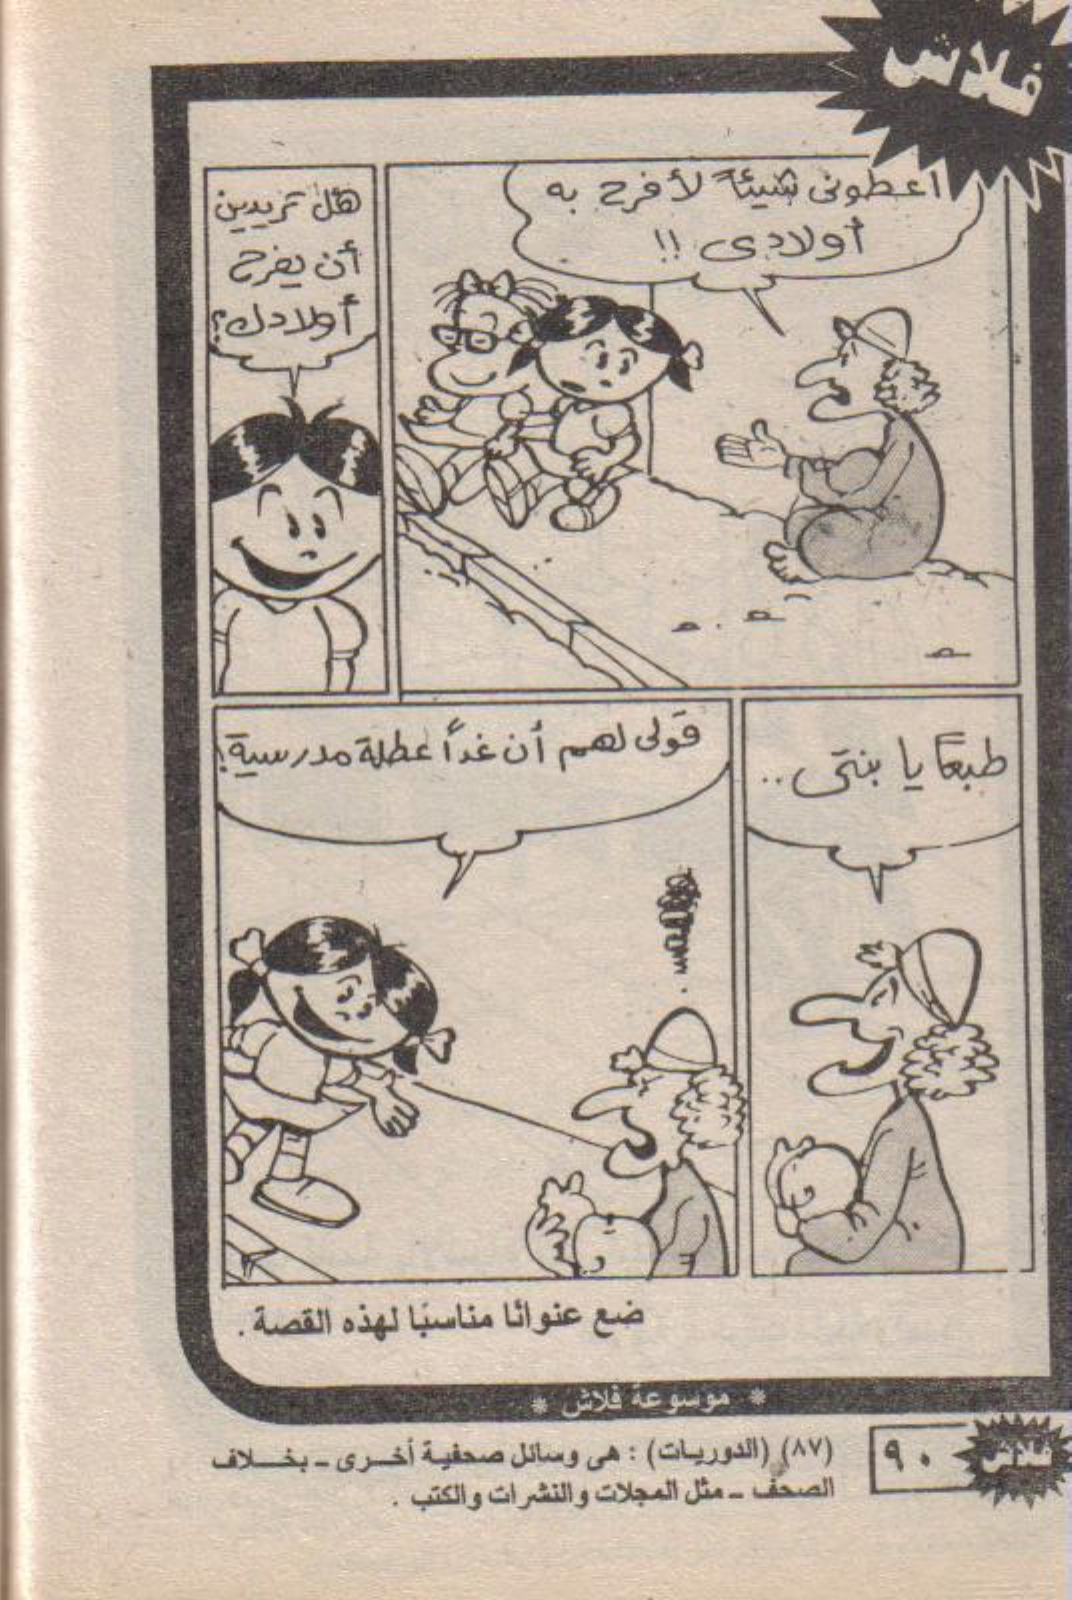 فلاش
اعطونى شيئاً لأفرح به
أولادى !!
هل تريدين
أن يفرح
أولادك؟
طبعاً يا بنتى ..
قولى لهم أن غداً عطلة مدرسية!
ضع عنوانًا مناسبًا لهذه القصة .
* موسوعة فلاش *
(٨٧) (الدوريات) : هى وسائل صحفية أخرى ـ بخلاف
الصحف ـ مثل المجلات والنشرات والكتب .
٩٠
فلاش